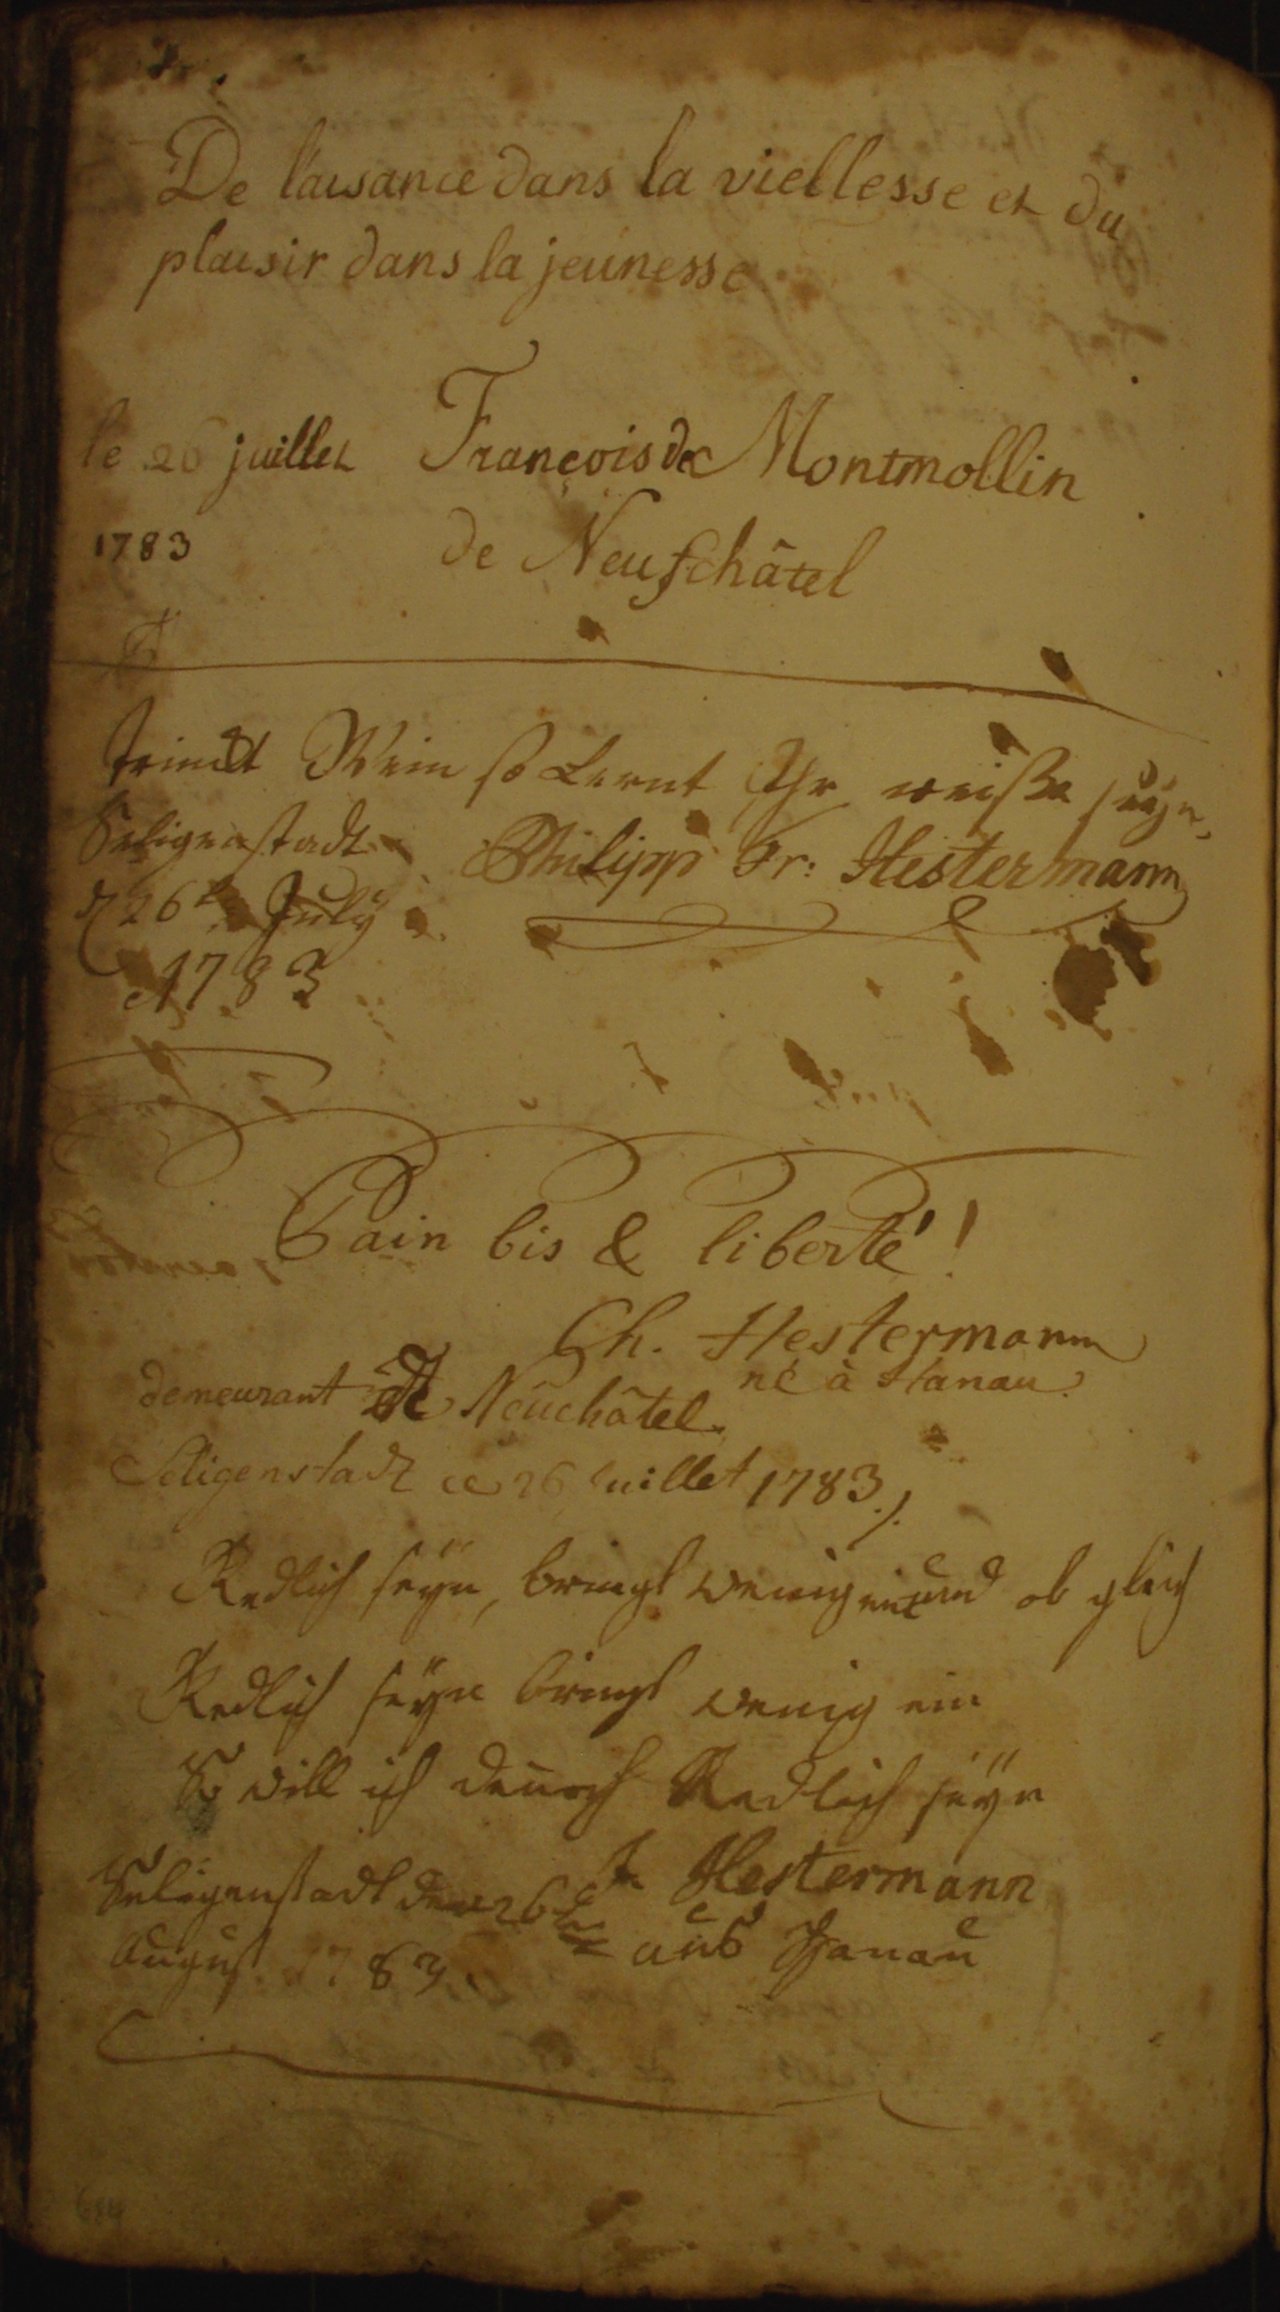 De l'aisance dans la viellesse et du
plaisir dans la jeunesse
le 26 juillet François de Montmollin
1783 de Neufchâtel
trinckt Wein so Lernt Ihr weisse seyn,
Seligenstadt Philipp Fr: Hestermann
d 26t July
1783
Pain bis & liberté!
Ch. Hestermann
né à Hanau.
demeurant Neuchâtel.
Seligenstadt ce 26 Juillet 1783
Redlich seyn, bringt wenig ein und ob gleich
Redlich seyn bringt wenig ein
So will ich dennoch Redlich seyn
Hestermann
Seligenstadt den 26ten aus Hanau
August 1783.